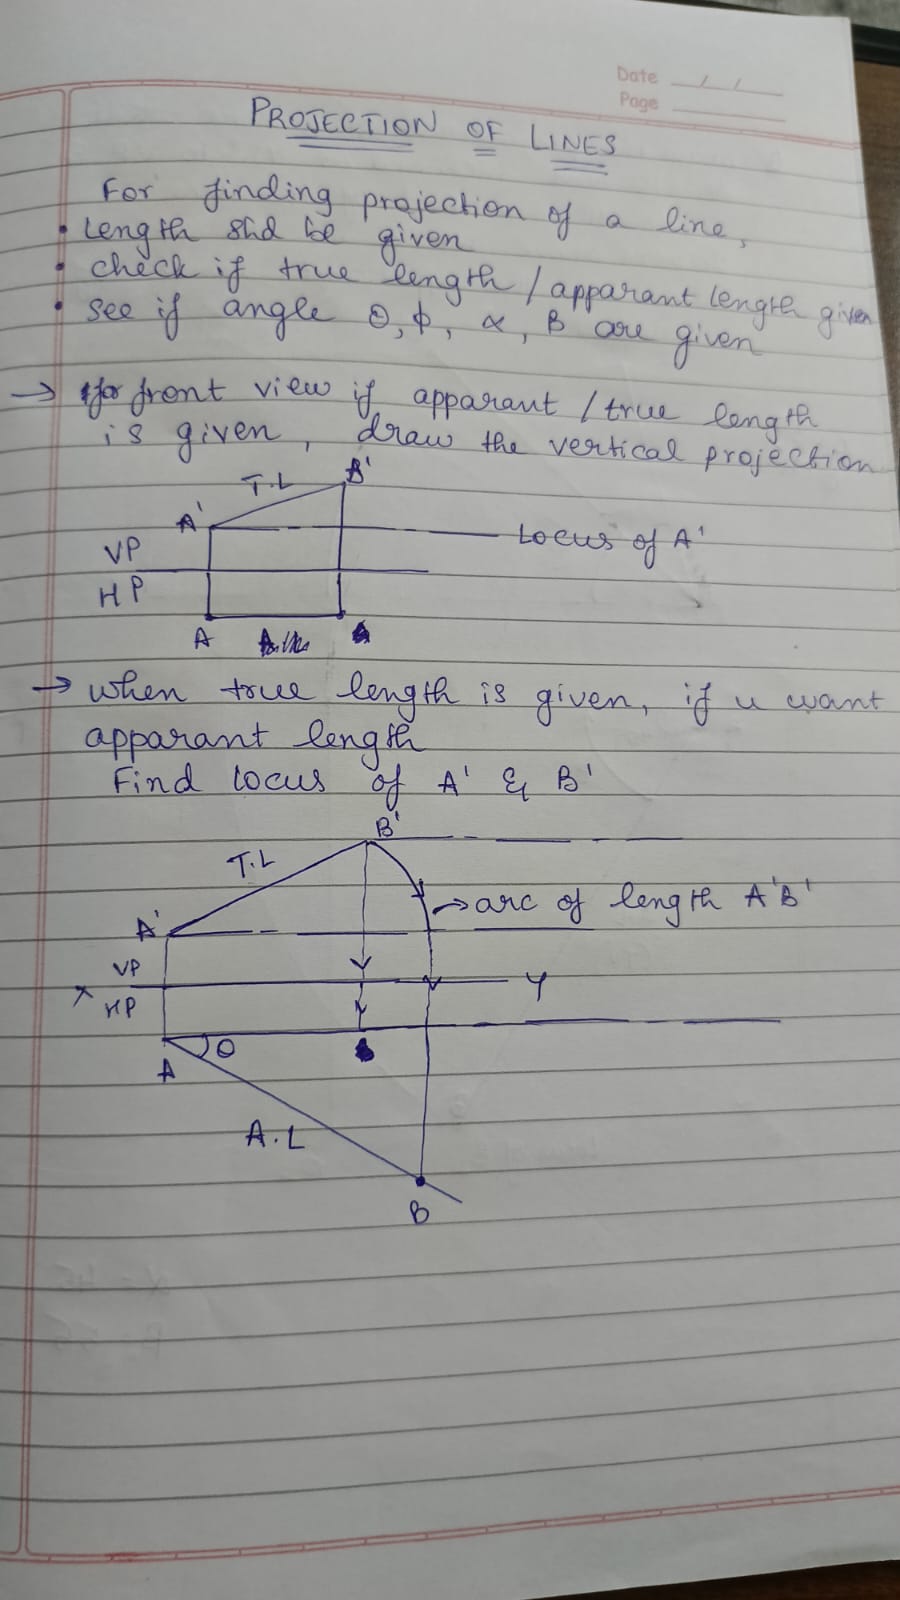 Date / /
Page
PROJECTION OF LINES
For finding projection of a line,
• Length shd be given
• check if true length / apparant length given
• see if angle θ, ϕ, α, β are given
→ for front view if apparant / true length
is given, draw the vertical projection
T.L B'
A'
Locus of A'
VP
HP
A
→ when true length is given, if u want
apparant length
Find locus of A' & B'
B'
T.L
→ arc of length A'B'
A'
VP
X Y
HP
θ
A
A.L
B